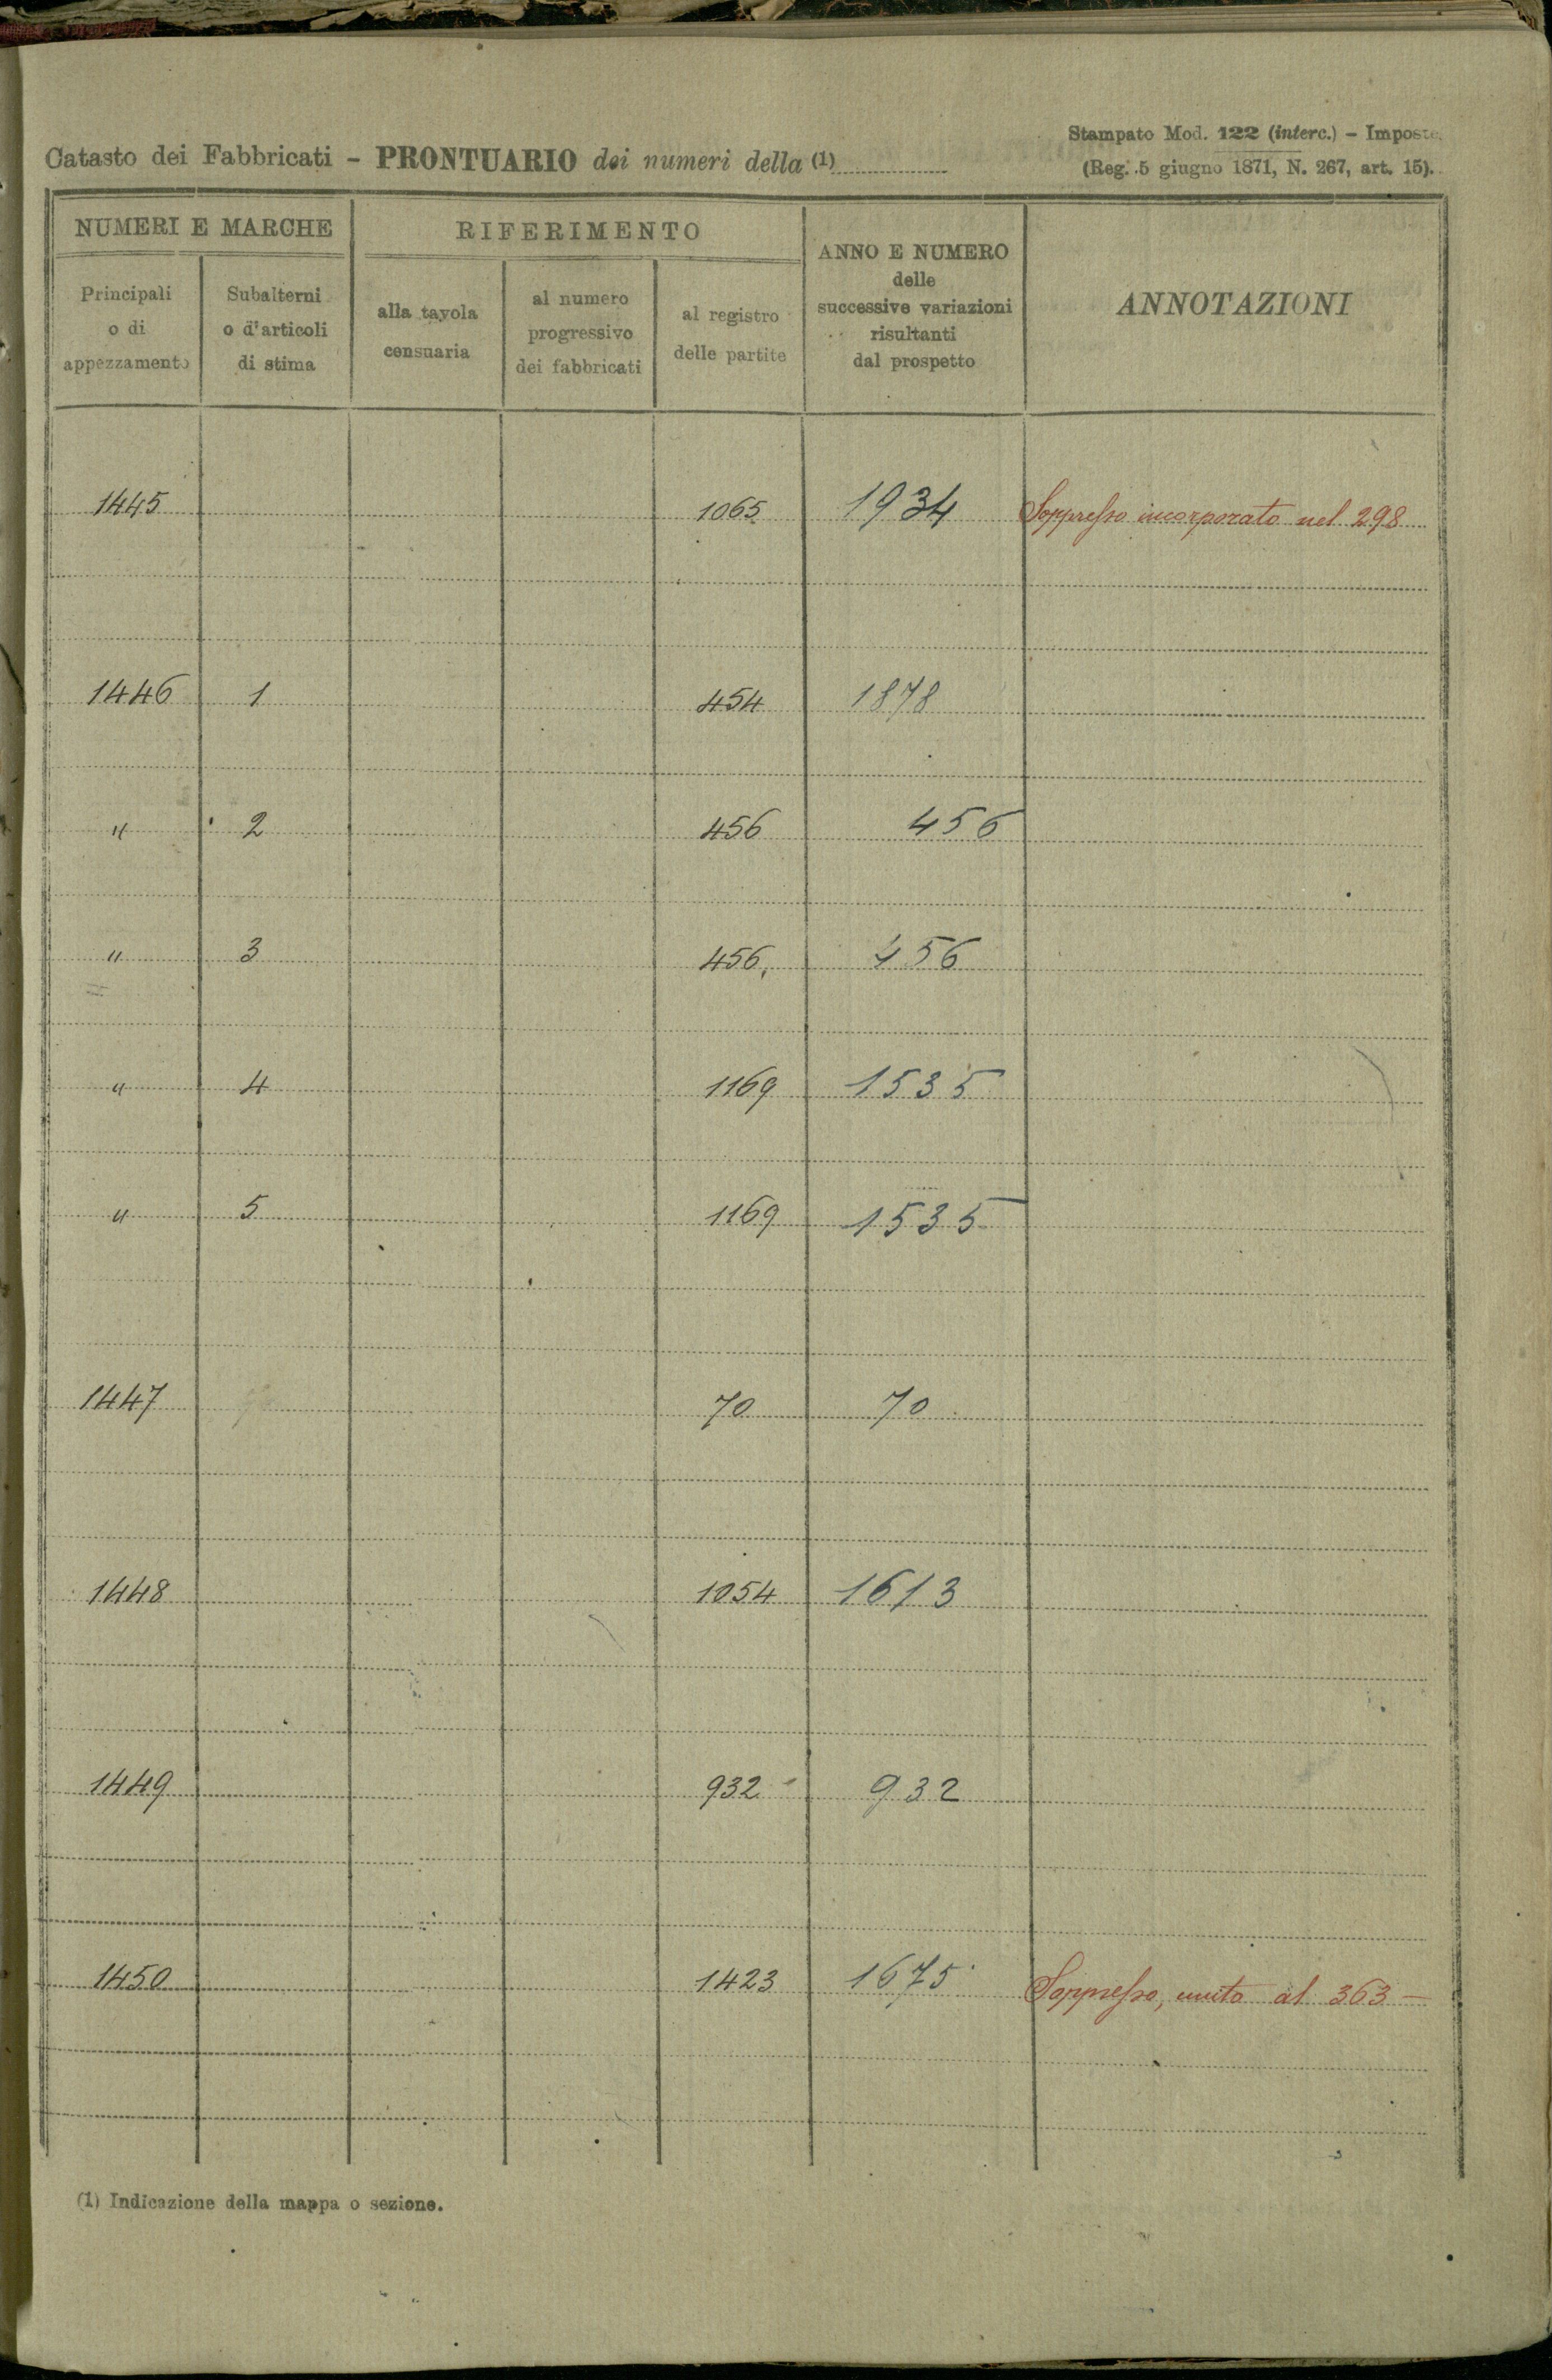 Catasto dei Fabbricati - PRONTUARIO dei numeri della (1)
Stampato Mod. 122 (interc.) - Imposte.
(Reg. 5 giugno 1871, N. 267, art. 15).
NUMERI E MARCHE
RIFERIMENTO
ANNO E NUMERO
delle
successive variazioni
risultanti
dal prospetto
ANNOTAZIONI
Principali
o di
appezzamento
Subalterni
o d'articoli
di stima
alla tavola
censuaria
al numero
progressivo
dei fabbricati
al registro
delle partite
1445 1065 1934 Soppresso incorporato nel 298
1446 1 454 1878
" 2 456 456
" 3 456 456
" 4 1169 1535
" 5 1169 1535
1447 70 70
1448 1054 1613
1449 932 932
1450 1423 1675 Soppresso, unito al 363 -
(1) Indicazione della mappa o sezione.